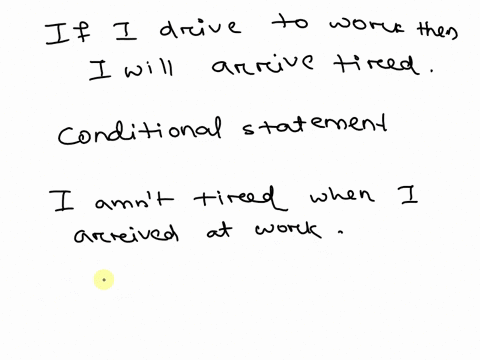 If I drive to work then
I will arrive tired.
Conditional statement
I amn't tired when I
arreived at work.